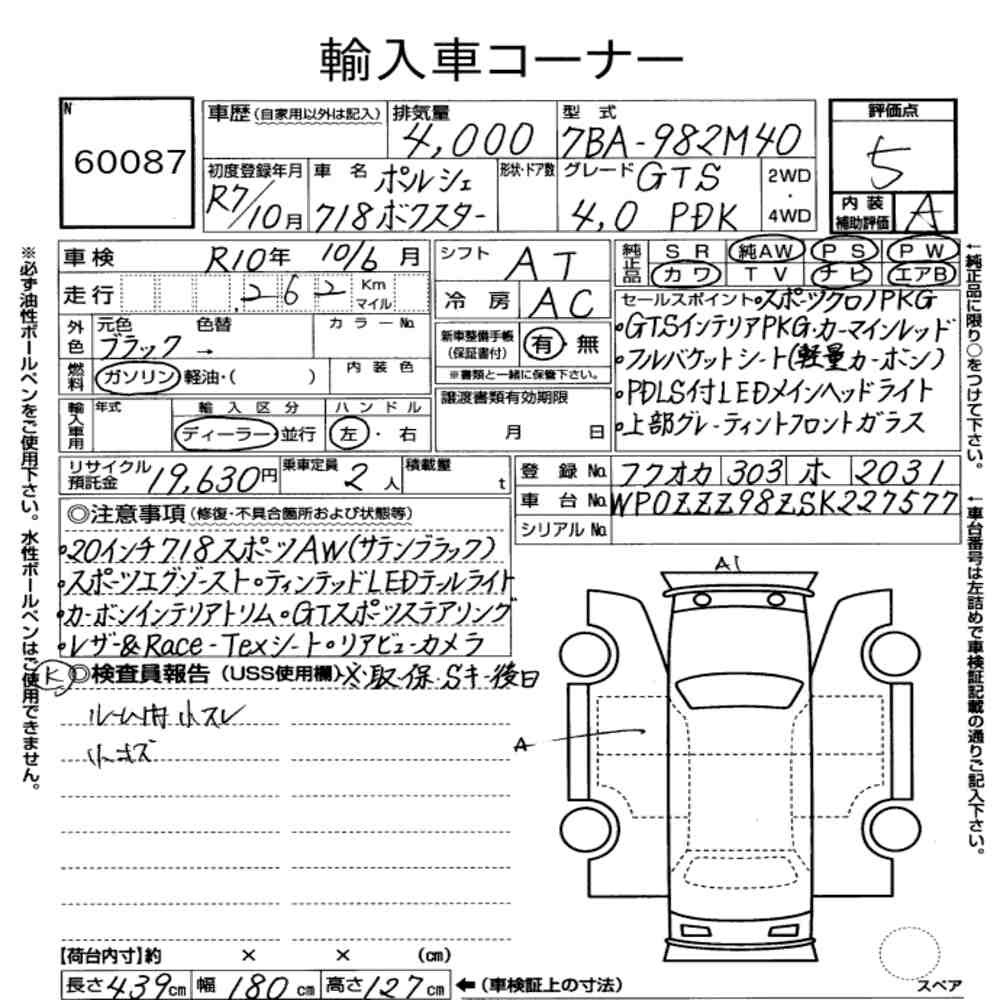 輸入車コーナー
N
60087
車歴(自家用以外は記入)
排気量
4,000
型 式
7BA-982M40
評価点
5
初度登録年月
R7/10月
車 名
ポルシェ
718ボクスター
形状・ドア数
グレード
GTS
4.0 PDK
2WD
・
4WD
内 装
補助評価
A
車検
R10年 10/6月
シフト
AT
純正品
SR 純AW PS PW
カワ TV ナビ エアB
走行
.262
Km
マイル
冷 房
AC
セールスポイント・スポーツクロノPKG
・GTSインテリアPKG・カーマインレッド
・フルバケットシート(軽量カーボン)
・PDLS付LEDメインヘッドライト
・上部グレーティントフロントガラス
外色
元色
色替
カラーNo.
ブラック →
新車整備手帳
(保証書付)
有・無
※書類と一緒に保管下さい。
燃料
ガソリン・軽油・( )
内 装 色
輸入車用
年式
輸 入 区 分
ハ ン ド ル
ディーラー・並行
左・右
譲渡書類有効期限
月 日
リサイクル
預託金
19,630円
乗車定員
2人
積載量
t
登 録 No.
フクオカ 303 ホ 2031
車 台 No.
WP0ZZZ98ZSK227577
シリアル No.
◎注意事項(修復・不具合箇所および状態等)
・20インチ718スポーツAW(サテンブラック)
・スポーツエグゾースト・ティンテッドLEDテールライト
・カーボンインテリアトリム・GTスポーツステアリング
・レザー&Race-Texシート・リアビューカメラ
K
◎検査員報告(USS使用欄)※取保・Sキー後日
ルーム内小スレ
小キズ
A1
A
【荷台内寸】約 × × (cm)
長さ439cm 幅180cm 高さ127cm ←(車検証上の寸法)
スペア
※必ず油性ボールペンをご使用下さい。水性ボールペンはご使用できません。
←純正品に限り○をつけて下さい。
←車台番号は左詰めで車検証記載の通りご記入下さい。